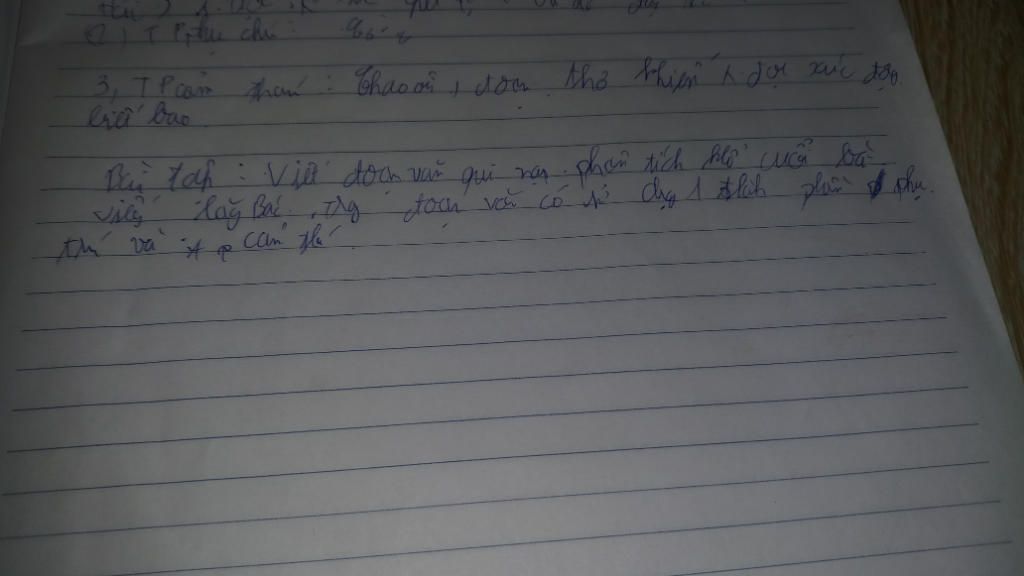 2, TP phụ chú :
3, TP cảm thán : Chao ôi, đoạn thơ thiện k đợi xúc độg
biết bao.
Bài tập : Viết đoạn văn qui nạp phân tích khổ cuối bài
viếg lăg Bác, tg đoạn văn có sử dụg 1 thàh phần phụ
chú và t p cảm thá